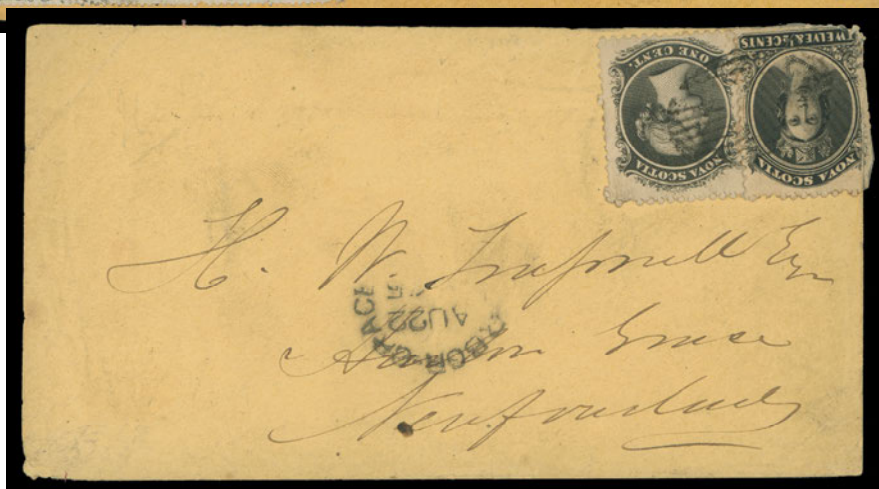 TWELVE & ½ CENTS
NOVA SCOTIA
ONE CENT.
NOVA SCOTIA
H. W. Trapnell Esq
Harbor Grace
Newfoundland
HARBOR GRACE
AU 22